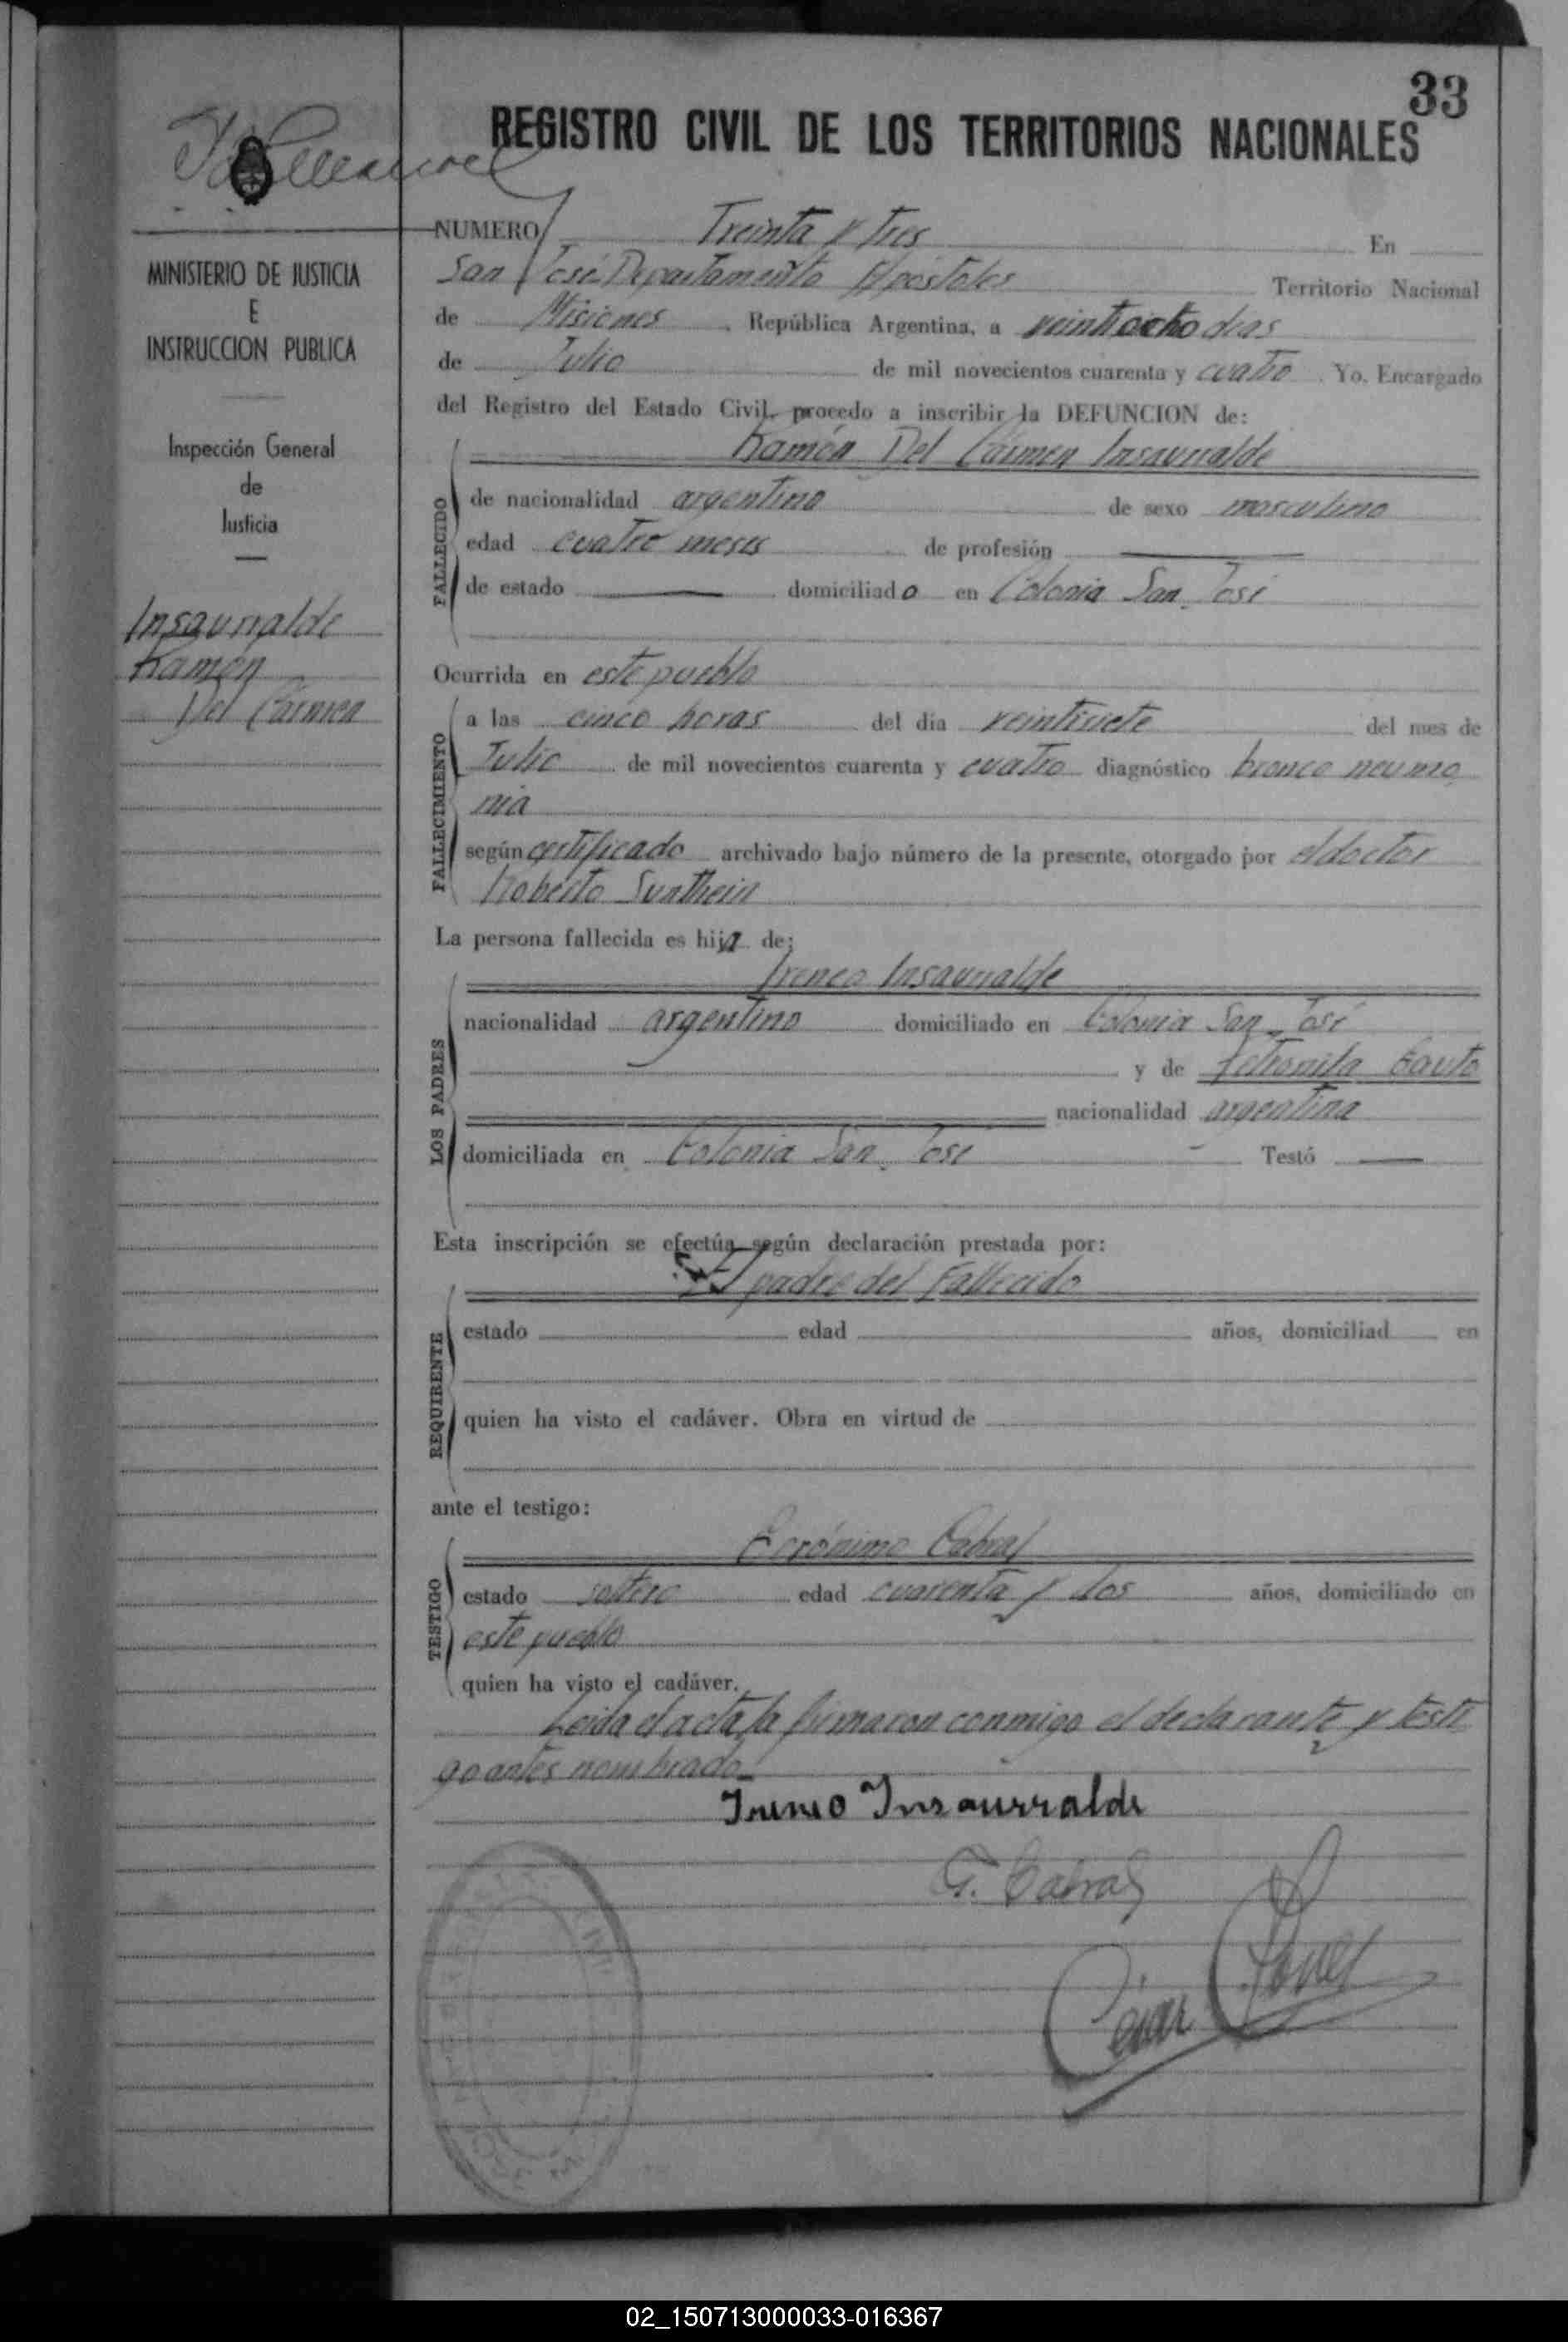 33
REGISTRO CIVIL DE LOS TERRITORIOS NACIONALES
NUMERO Treinta y tres En
San José Departamento Apóstoles Territorio Nacional
de Misiones, República Argentina, a veintiocho dias
de Julio de mil novecientos cuarenta y cuatro. Yo, Encargado
del Registro del Estado Civil, procedo a inscribir la DEFUNCION de:
Ramón Del Cármen Insaurralde
FALLECIDO
de nacionalidad argentino de sexo masculino
edad cuatro meses de profesión
de estado domiciliado en Colonia San José
MINISTERIO DE JUSTICIA
E
INSTRUCCION PUBLICA
Inspección General
de
Justicia
Insaurralde
Ramón
Del Cármen
Ocurrida en este pueblo
FALLECIMIENTO
a las cinco horas del día veintisiete del mes de
Julio de mil novecientos cuarenta y cuatro diagnóstico bronco neumo
nia
según certificado archivado bajo número de la presente, otorgado por el doctor
Roberto
La persona fallecida es hijo de:
LOS PADRES
Ireneo Insaurralde
nacionalidad argentino domiciliado en Colonia San José
y de Petronila
nacionalidad argentina
domiciliada en Colonia San José Testó
Esta inscripción se efectúa según declaración prestada por:
REQUIRENTE
El padre del Fallecido
estado edad años, domiciliad en
quien ha visto el cadáver. Obra en virtud de
ante el testigo:
TESTIGO
Gerónimo Cabral
estado soltero edad cuarenta y dos años, domiciliado en
este pueblo
quien ha visto el cadáver.
Leida el acta, la firmaron conmigo el declarante y testi
go antes nombrado
Ireneo Insaurralde
G. Cabral
César
02_150713000033-016367